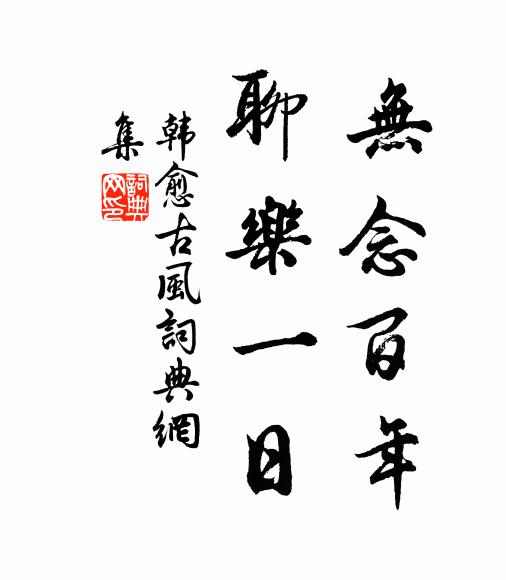 無念百年
聊樂一日
韩愈古風詞典網
集
詞典網印